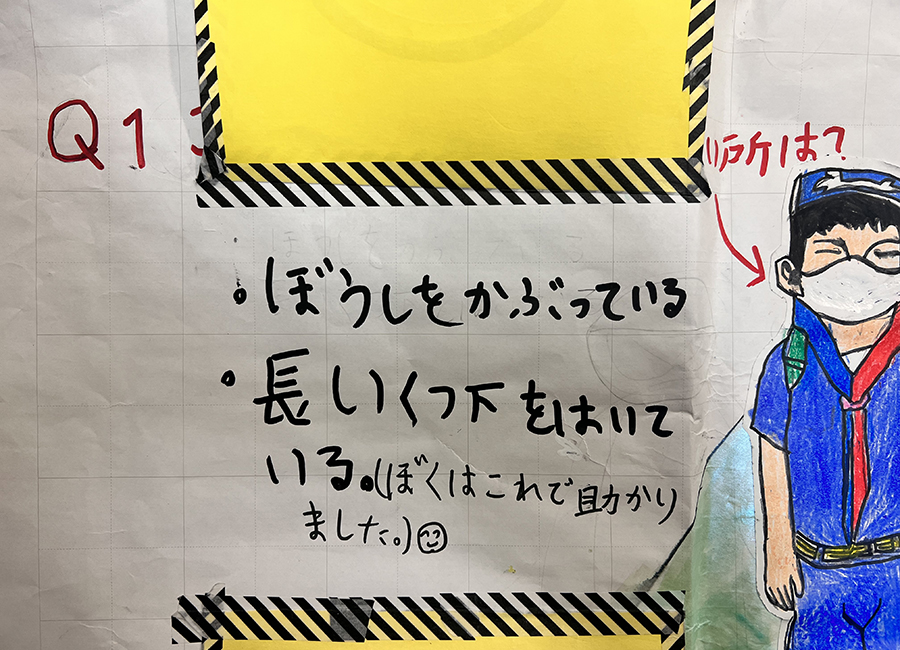 Q1
所は?
・ぼうしをかぶっている
・長いくつ下をはいて
いる。(ぼくはこれで助かり
ました。)